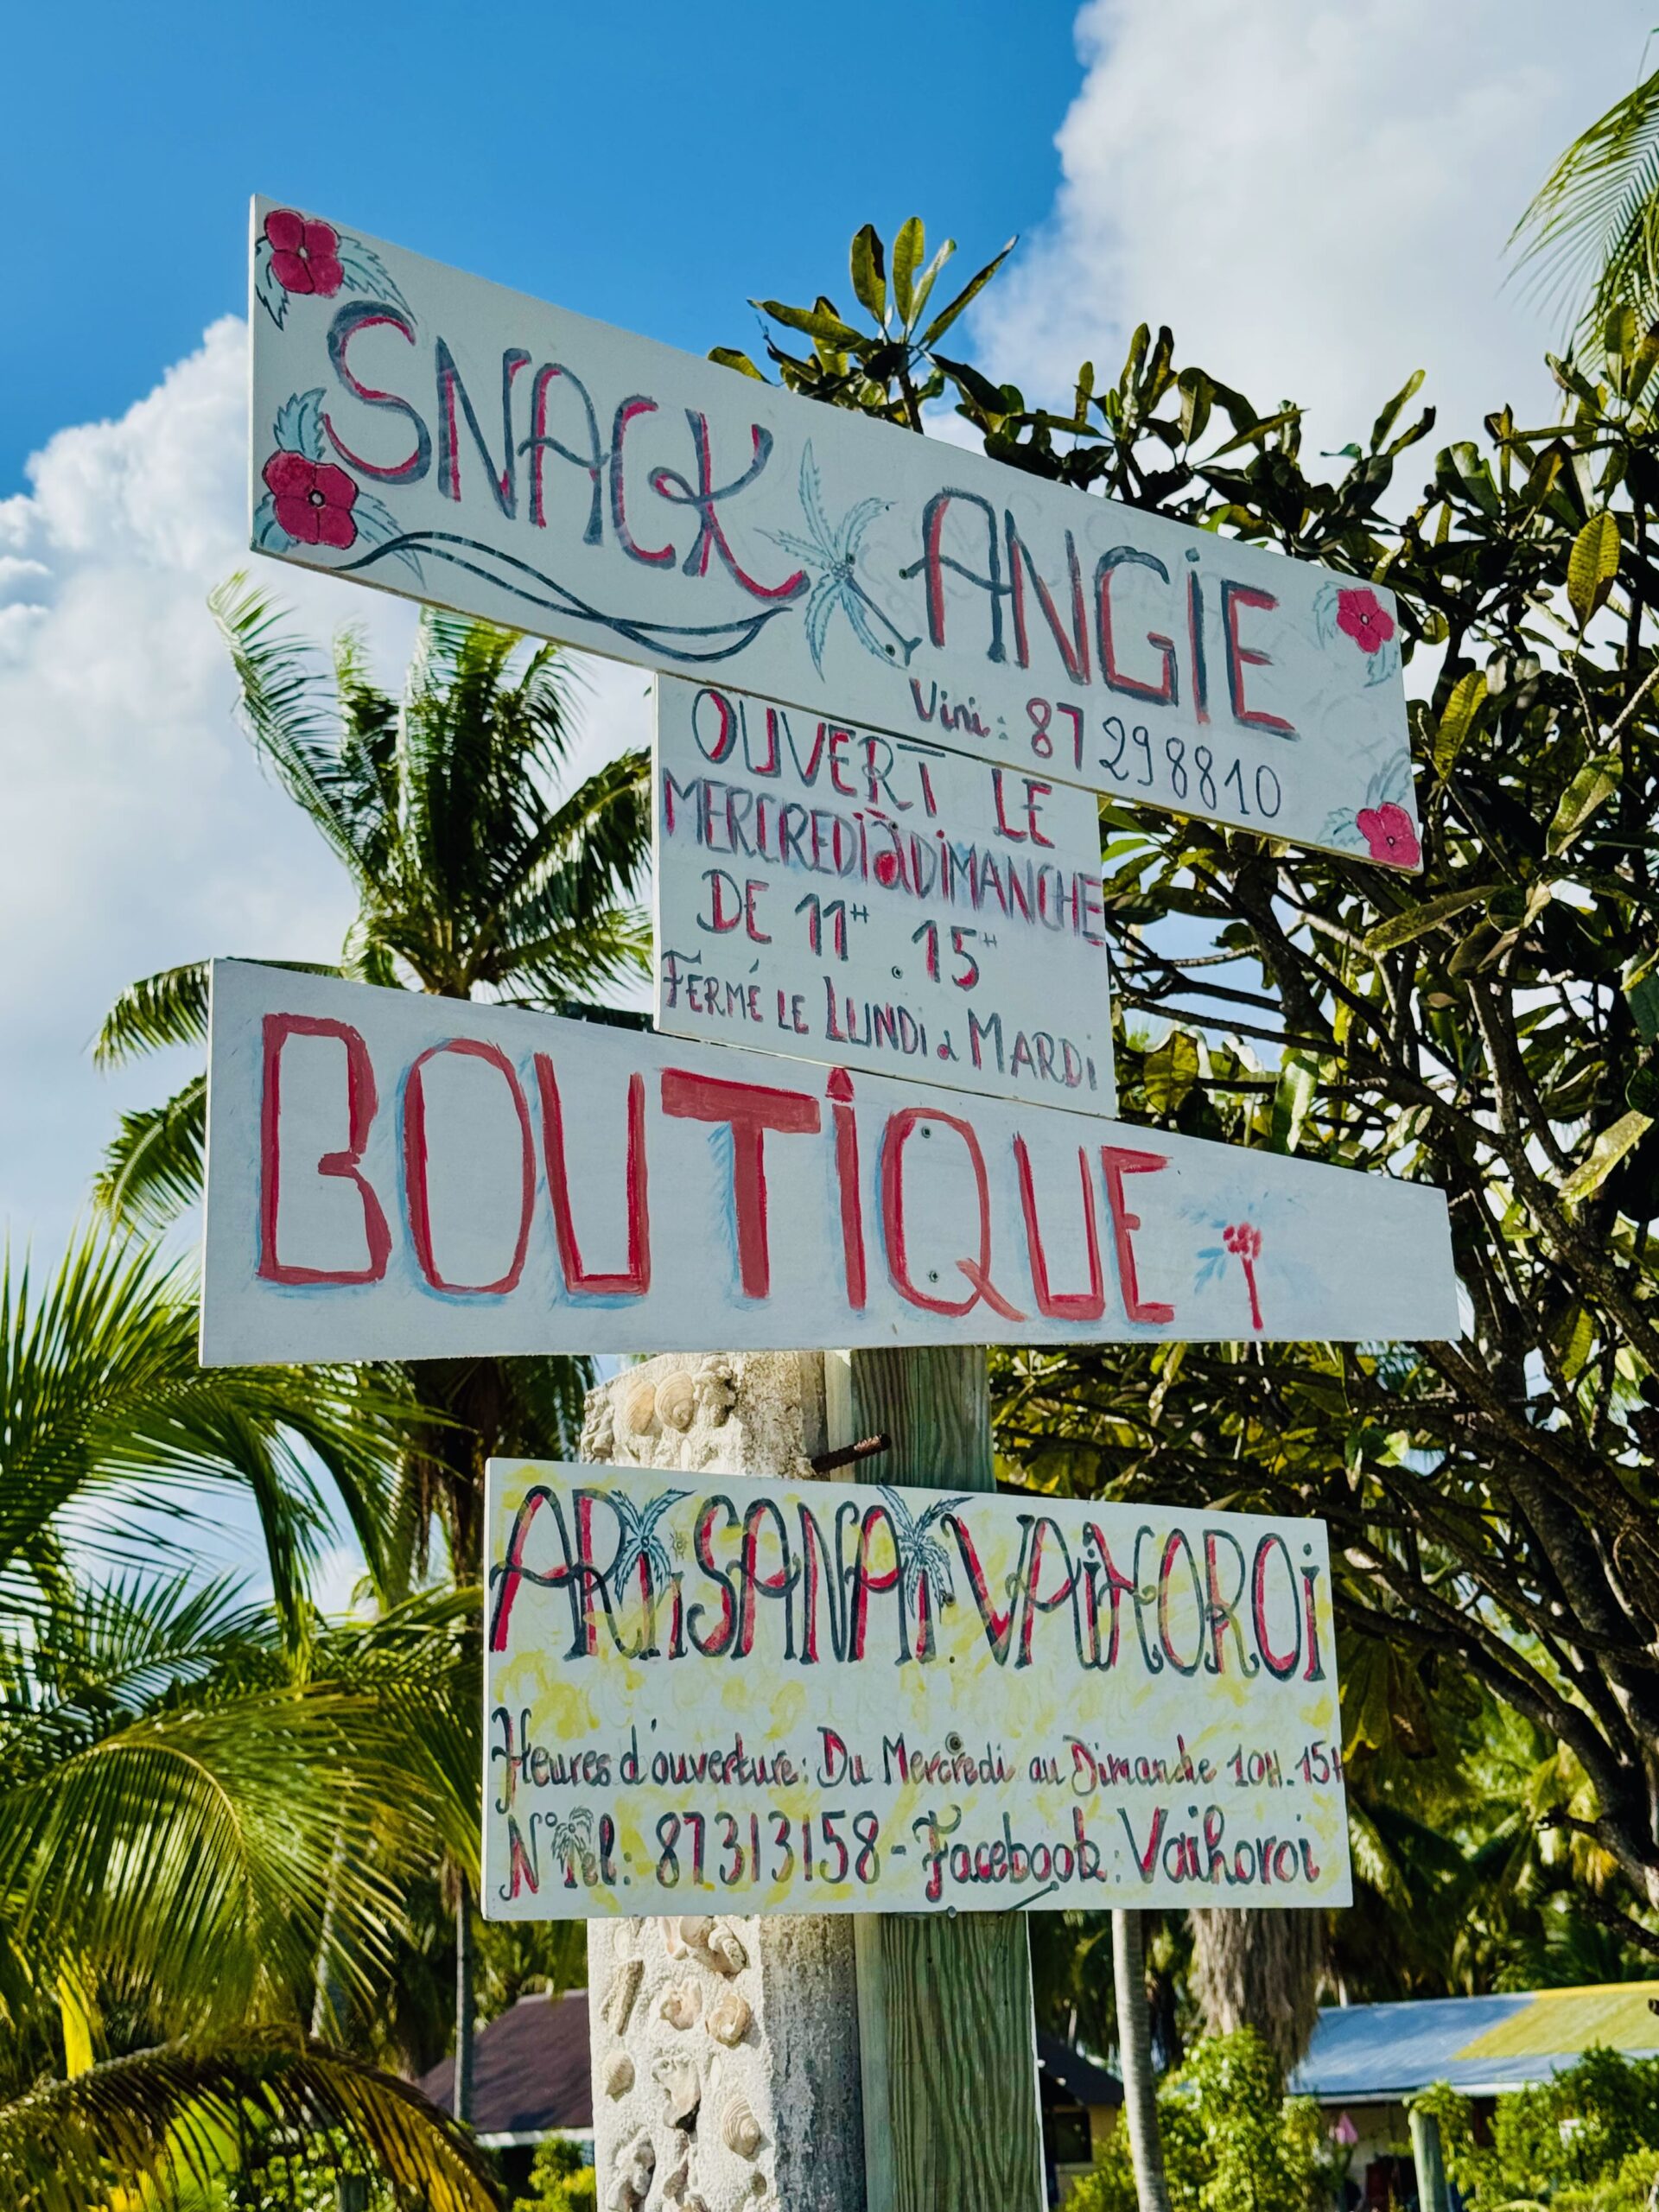 SNACK ANGIE
Vini: 87 298810
OUVERT LE
MERCREDI à DIMANCHE
DE 11H. 15H
FERMÉ LE LUNDI a MARDI
BOUTIQUE
ARTISANAT VAIHOROI
Heures d'ouverture: Du Mercredi au Dimanche 10H. 15H
N° Tel: 87313158 - Facebook: Vaihoroi